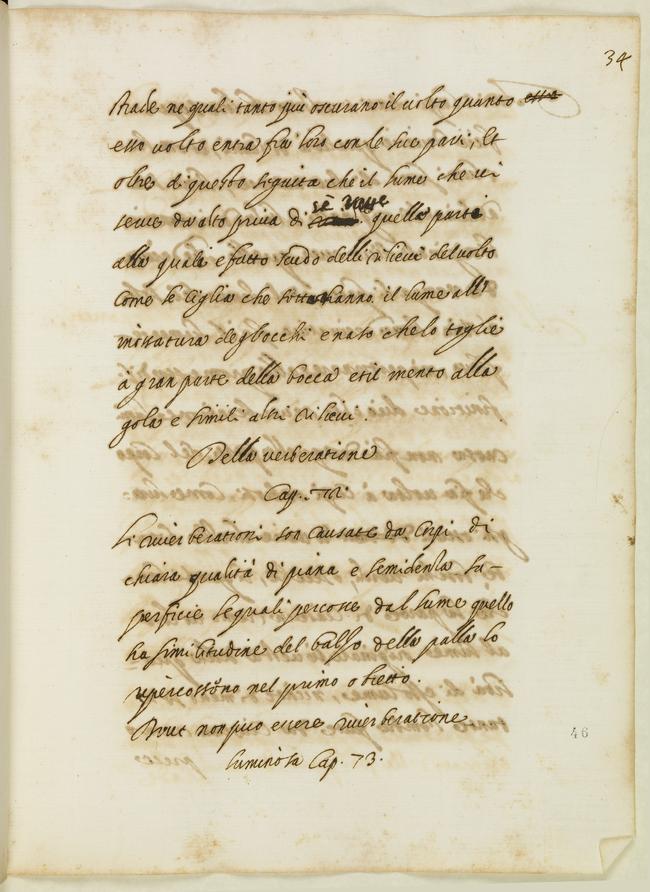 34
strade ne quali tanto piu oscurano il volto quanto esso
esso volto entra fra loro con le sue parti, Et
oltre di questo seguita che il lume che vi
serve da alto priva di sè stesse quelle parti
alle quali è fatto scudo delli rilievi del volto
come le ciglia che sottranno il lume all'
incassatura degl'occhi e naso che lo toglie
à gran parte della bocca et il mento alla
gola e simili altri rilievi.
Della verberatione
Cap. 72.
Li riverberationi son causate da corpi di
chiara qualità di piana e semidensa su-
perficie le quali percosse dal lume quello
ha similitudine del balzo della palla lo
ripercossono nel primo obietto.
Dove non può essere riverberatione
luminosa Cap. 73.
46